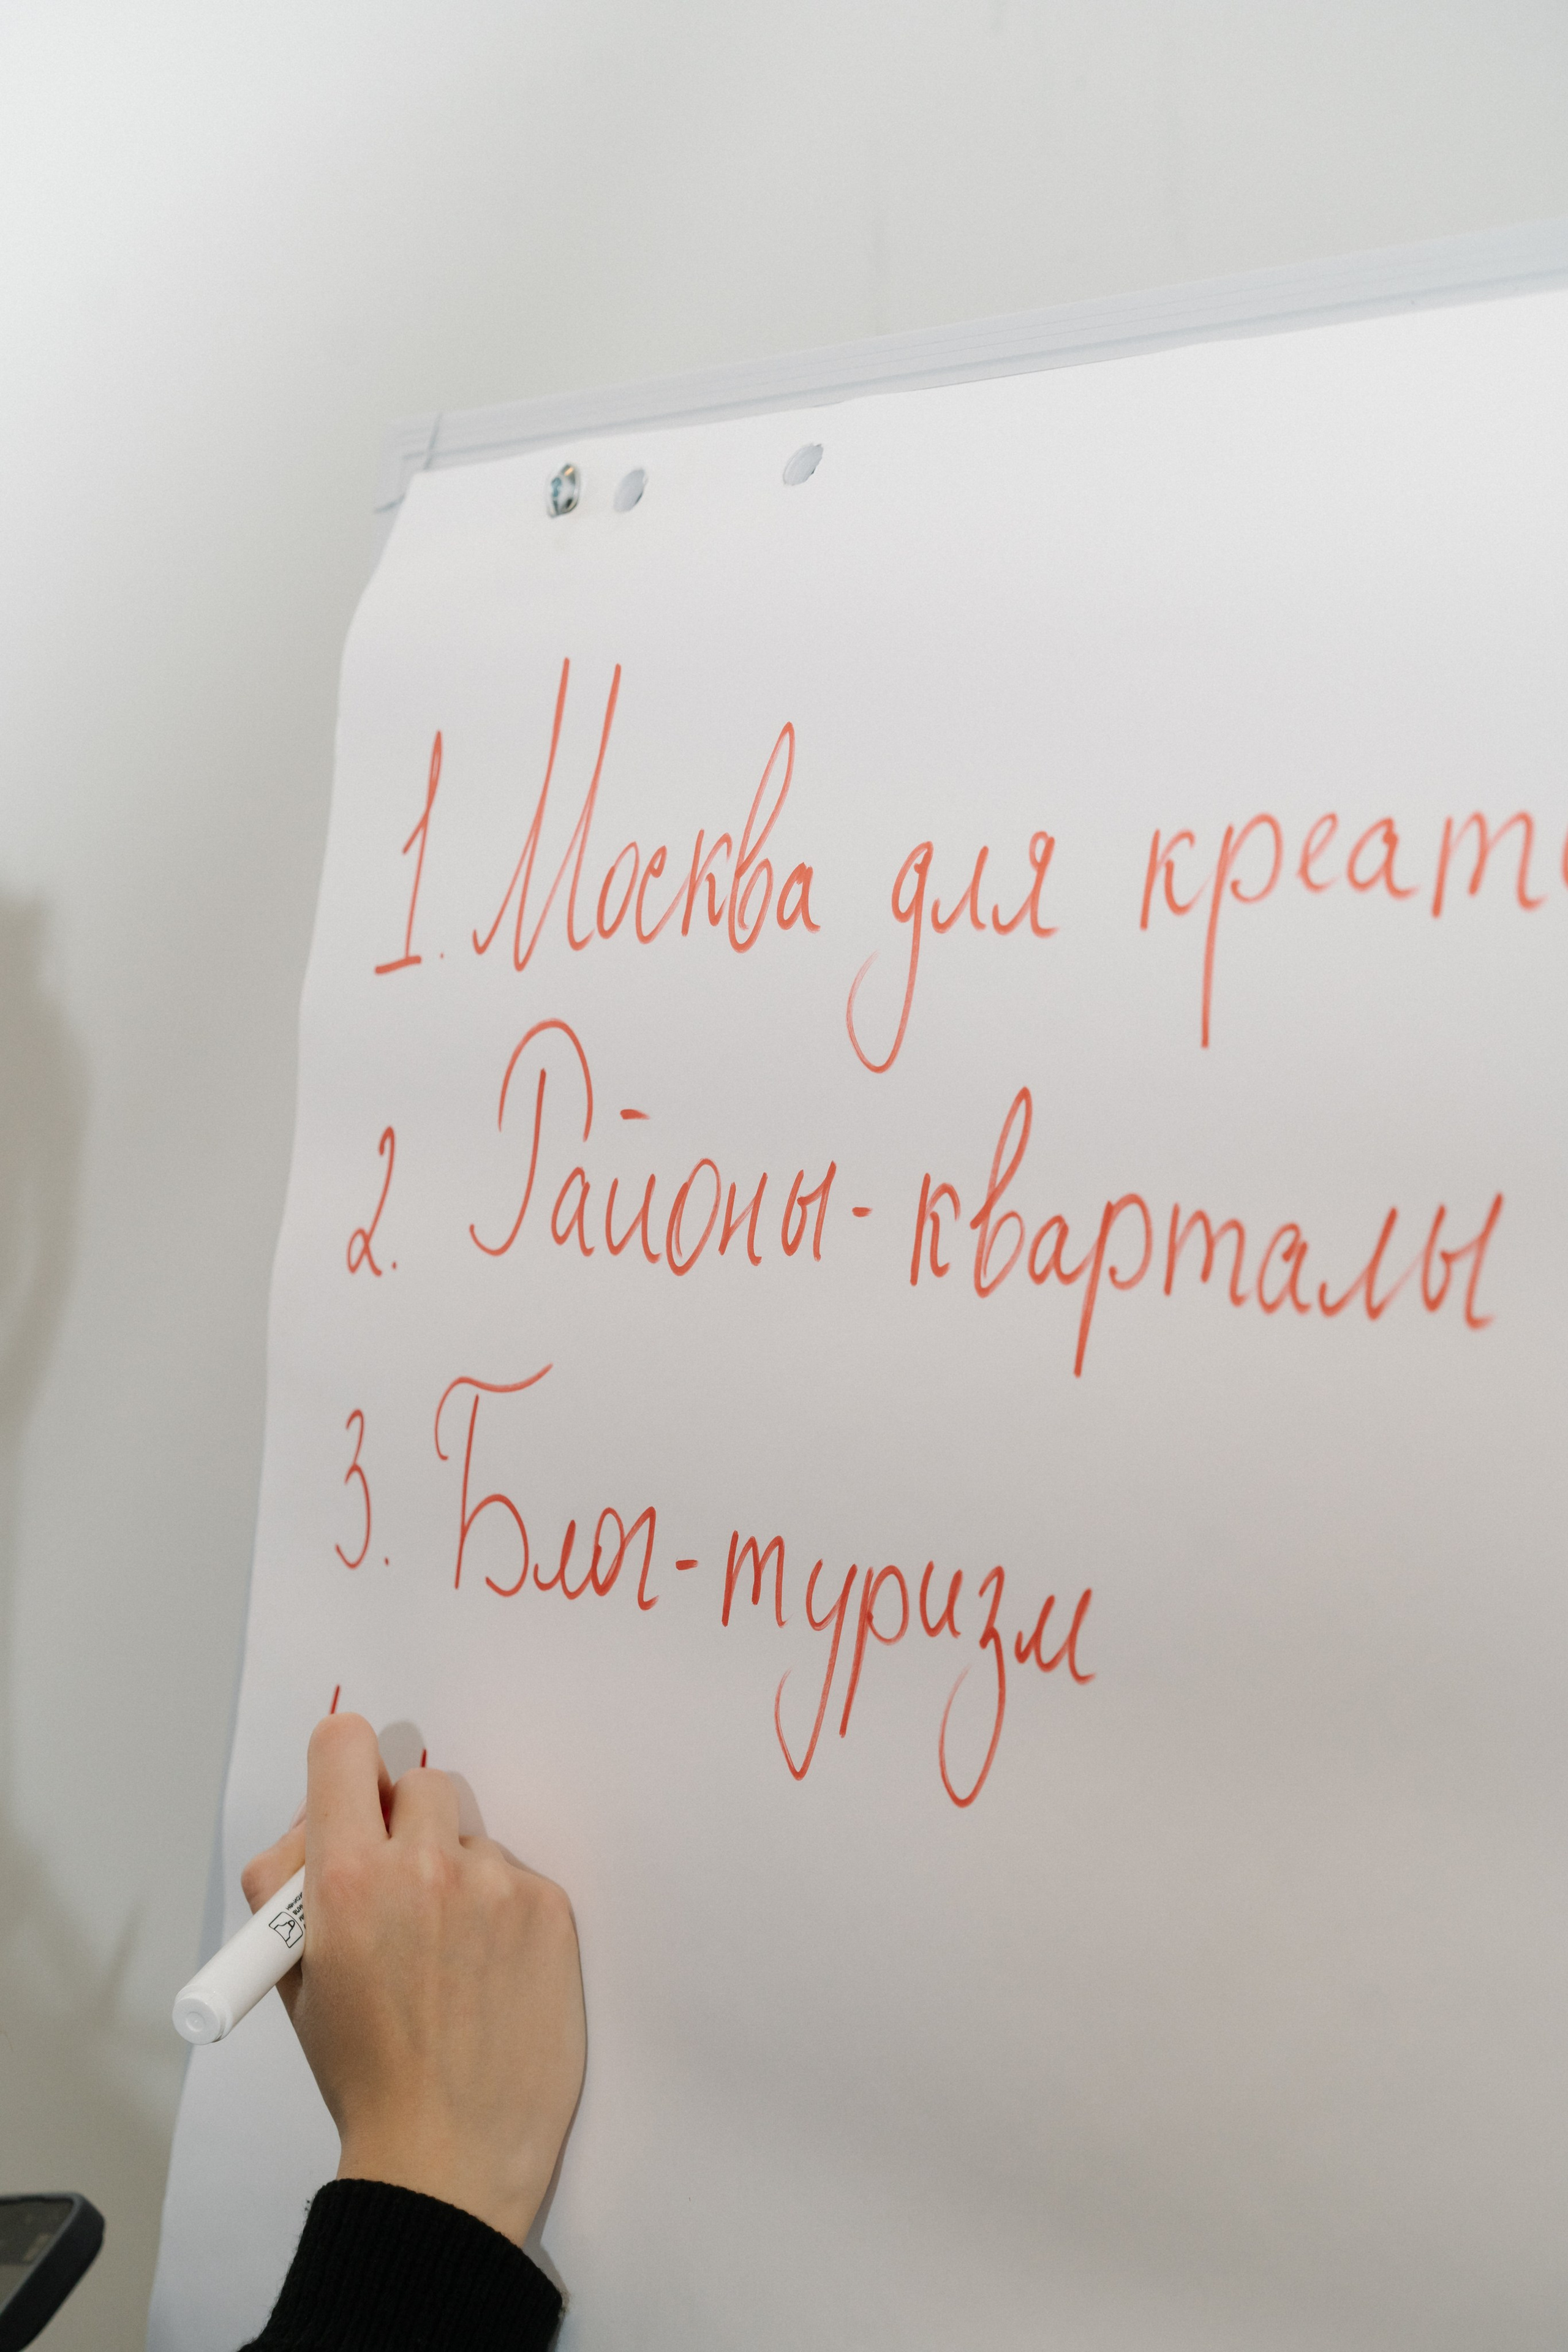 1. Москва для креат
2. Районы-кварталы
3. Блог-туризм